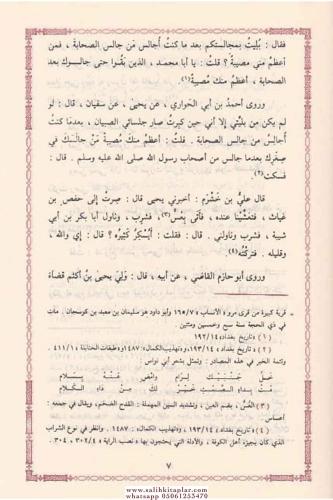 فقال : بُلِيتُ بمجالستكم بعد ما كنتُ أُجالس مَن جالس الصحابة ، فمن
أعظمُ مني مصيبةً ؟ قلتُ : يا أبا محمد ، الذين بَقُوا حتى جالسوك بعد
الصحابة ، أعظمُ منك مُصيبةً(١).
وروى أحمدُ بن أبي الحَواري ، عن يحيى ، عن سفيان ، قال : لو
لم يكن من بليَّتي إلا أني حين كبِرتُ صار جلسائي الصبيان ، بعدما كنتُ
أُجالِسُ من جالسَ الصحابة . قلتُ : أعظمُ منكَ مُصيبةً مَنْ جالسَكَ في
صِغرِكَ بعدما جالس من أصحاب رسول الله صلى الله عليه وسلم . قال :
فسكت(٢)
قال عليُّ بن خَشْرَم : أخبرني يحيى قال : صِرتُ إلى حفص بن
غياث ، فتعَشَّينا عنده ، فأتى بِعُسٍّ(٣)، فشرب ، وناول أبا بكر بن أبي
شيبة ، فشرب وناولني . قال : فقلت : أَيُسْكِرُ كَثيرُه ؟ قال : إي والله ،
وقليله . فتركتُه(٤)
وروى أبو حازم القاضي ، عن أبيه ، قال : وَلِيَ يحيى بنُ أكثم قضاءَ
قرية كبيرة من قرى مرو ، الأنساب ، ١٦٥/٧ وأبو داود هو سليمان بن معبد بن كوسجان . مات
في ذي الحجة سنة سبع وخمسين ومئتين .
(١) «تاريخ بغداد» ١٩٢/١٤
(٢) «تاريخ بغداد» ١٩٣/١٤، و«تهذيب الكمال» : ١٤٨٧ و«طبقات الحنابلة» ٤١١/١ .
وتتمة الخبر في هذه المصادر : وتمثل بشعر أبي نواس
خَلِّ جَنْبَيْكَ لِرَامِ وامْضِ عَنْهُ بِسَلامِ
مُتْ بِداءِ الصَّمْتِ خَيرٌ لكَ مِنْ داءِ الكَلامِ
(٣) العُسّ ، بضم العين ، وتشديد السين المهملة : القدح الضخم ، ويقال في جمعه :
أعساس
(٤) «تاريخ بغداد» ١٩٣/١٤، و«تهذيب الكمال» : ١٤٨٧ . وانظر في نوع الشراب
الذي كان يجيزه أهل الكوفة ، والأدلة التي يحتجون بها «نصب الراية» ٣٠٢/٤ ، ٣٠٤ .
٧
www.salihkitaplar.com
whatsapp 05061253470